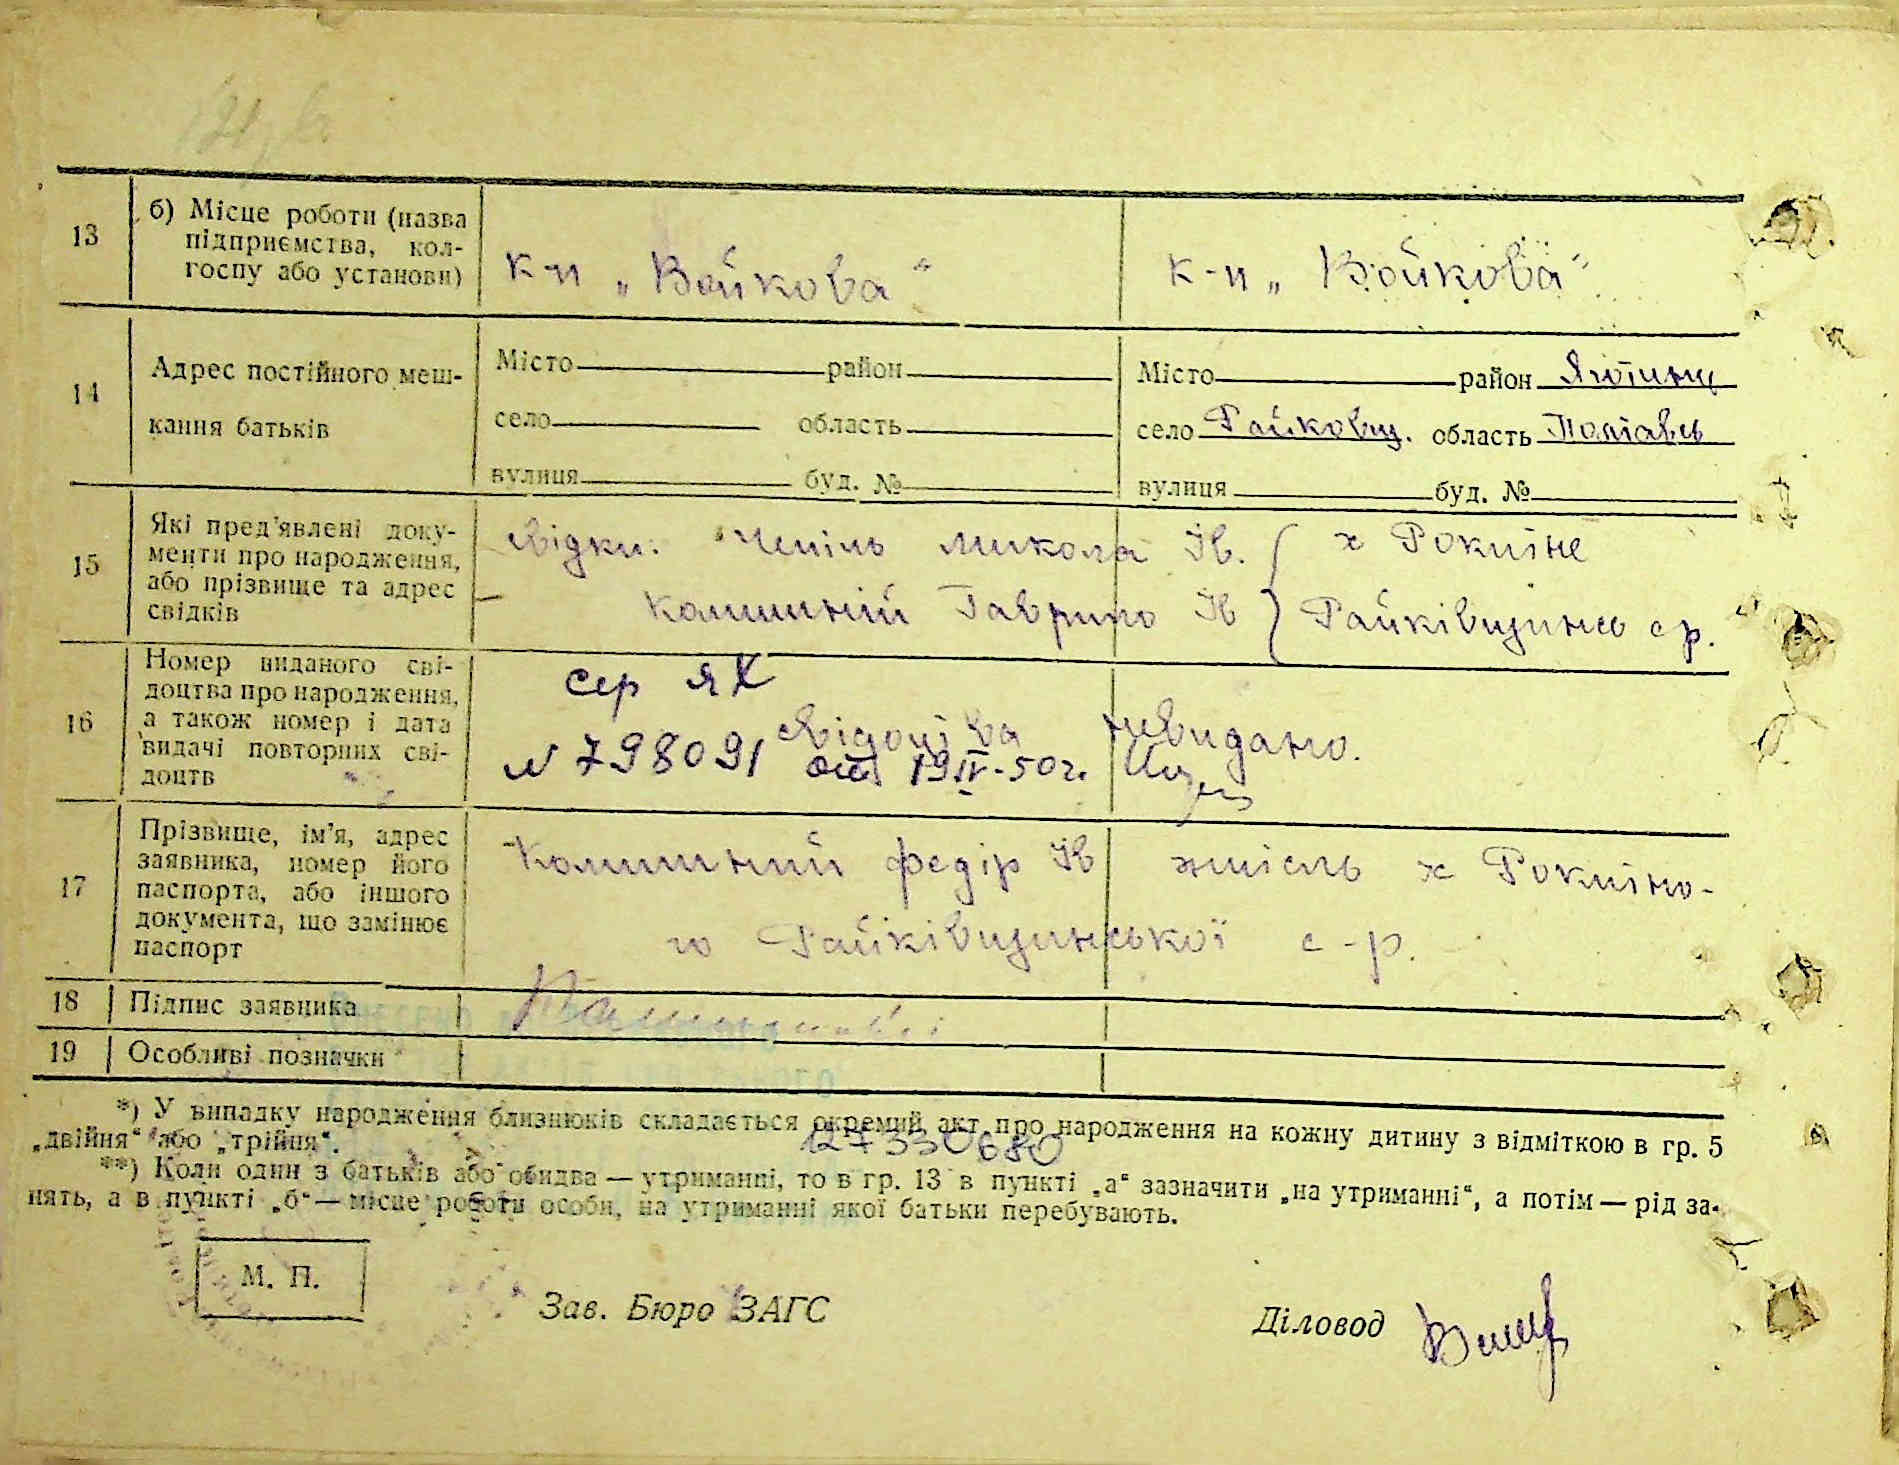 13
б) Місце роботи (назва
підприємства, кол-
госпу або установи)
к-п „Войкова“
к-п „Войкова“
14
Адрес постійного меш-
кання батьків
Місто район
село область
вулиця буд. №
Місто район Яготинц
село Райковщ. область Полтавсь
вулиця буд. №
15
Які пред'явлені доку-
менти про народження,
або прізвище та адрес
свідків
свідки: Чепіль Микола Ів. х Рокитне
Калишній Гаврило Ів Райківщинсь с р.
16
Номер виданого сві-
доцтва про народження,
а також номер і дата
видачі повторних сві-
доцтв
сер ЯХ
свідоцтва невидано.
N 798091 от 19 IV-50 г.
17
Прізвище, ім'я, адрес
заявника, номер його
паспорта, або іншого
документа, що замінює
паспорт
Калишний Федір Ів житель х Рокитно-
го Райківщинської с-р.
18
Підпис заявника
19
Особливі позначки
*) У випадку народження близнюків складається окремий акт про народження на кожну дитину з відміткою в гр. 5
„двійня“ або „трійня“.
127330680
**) Коли один з батьків або обидва — утриманні, то в гр. 13 в пункті „а“ зазначити „на утриманні“, а потім — рід за-
нять, а в пункті „б“ — місце роботи особи, на утриманні якої батьки перебувають.
М. П.
Зав. Бюро ЗАГС
Діловод